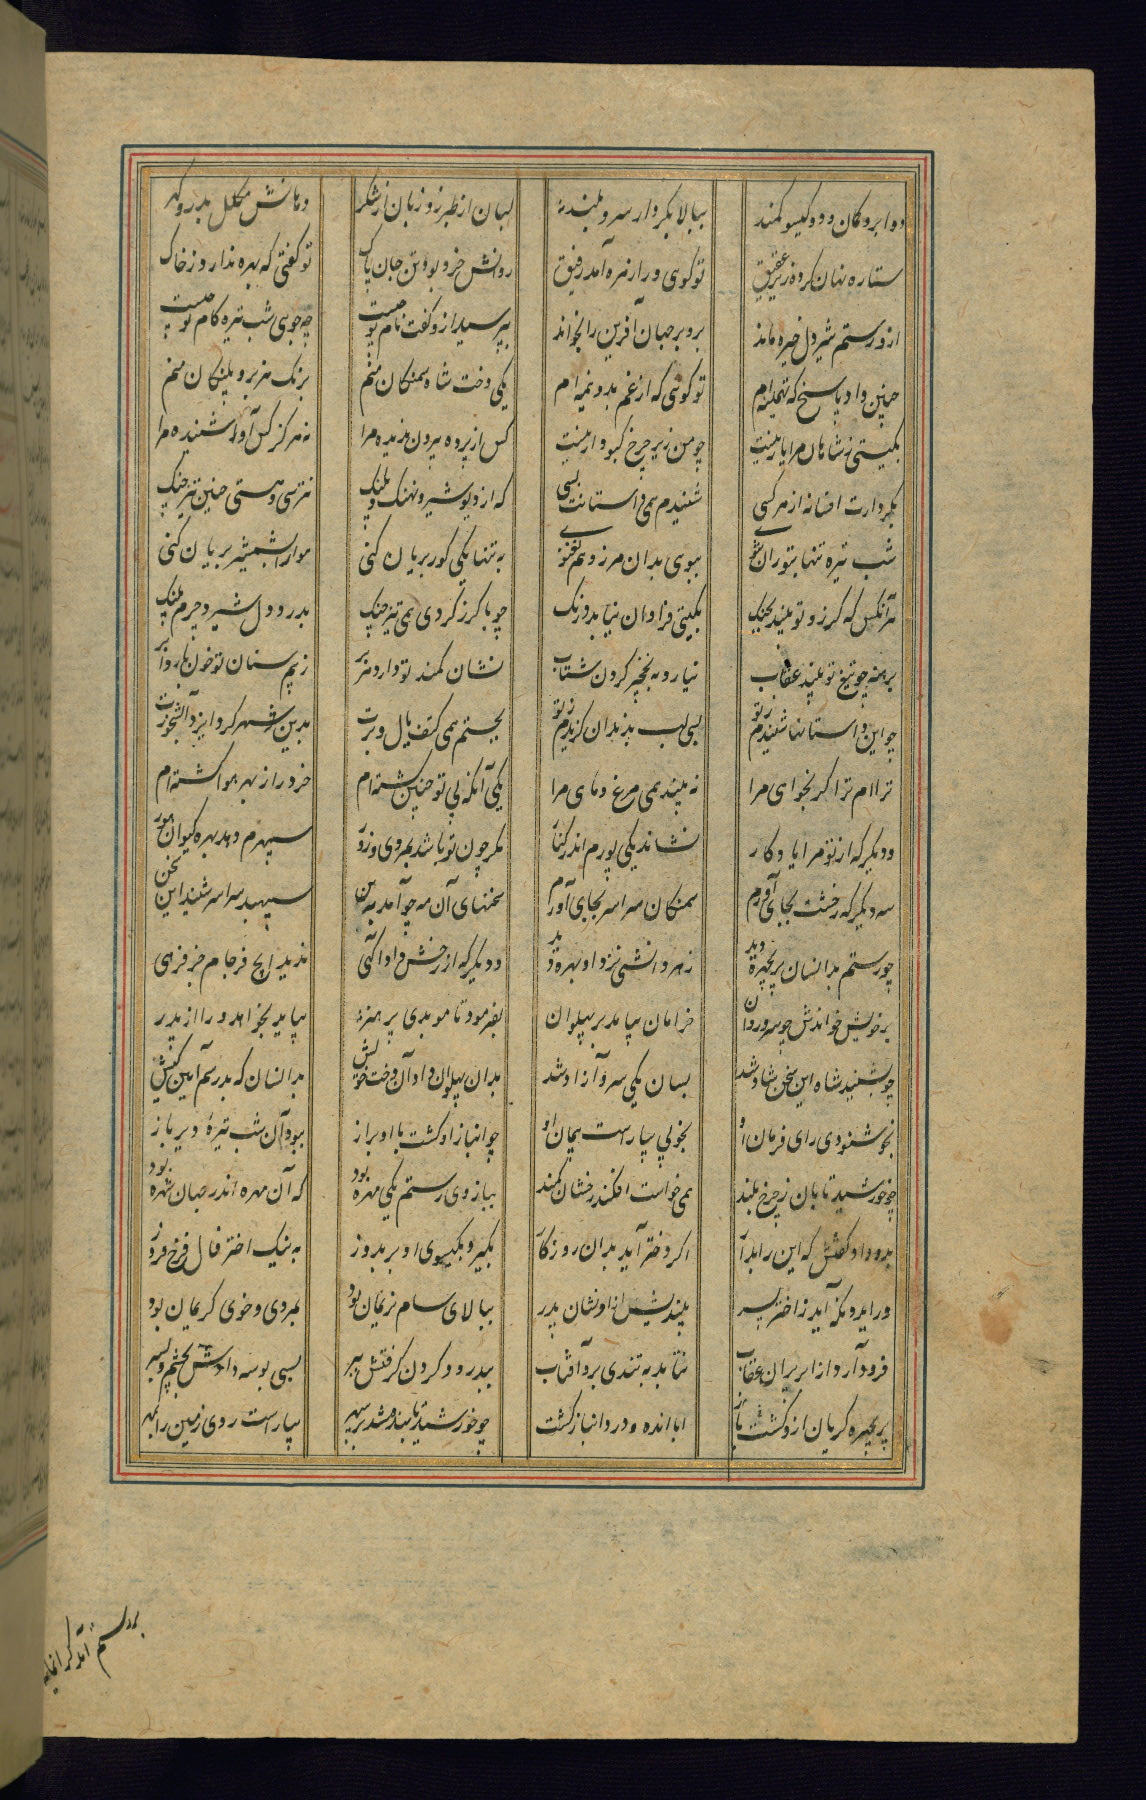 دو ابرو کمان و دو گیسو کمند ببالا بکردار سرو بلند لبان از طبرزد زبان از شکر دهانش مکلل بدر و گهر
ستاره نهان کرده زیر عقیق تو گوی ورا زهره آمد رفیق روانش خرد بود و تن جان پاک تو گفتی که بهره ندارد ز خاک
ازو رستم شیردل خیره ماند برو بر جهان آفرین را بخواند بپرسید ازو گفت نام تو چیست چه جویی شب تیره کام تو چیست
چنین داد پاسخ که تهمینه ام تو گوئی که از غم بدو نیمه ام یکی دخت شاه سمنگان منم بزنگ هزبر و پلنگان منم
بگیتی ز شاهان مرا یار نیست چو من زیر چرخ کبود ار نیست کس از پرده بیرون ندیده مرا نه هرگز کس آوا شنیده مرا
بکردارت افسانه از هر کسی شنیدم همی داستانت بسی که از دیو و شیر و نهنگ و پلنگ نترسی و هستی چنین تیز چنگ
شب تیره تنها بتوران شوی ببوی بدان مرز و هم نغنوی به تنها یکی گور بریان کنی هوا را بشمشیر بریان کنی
هر آنکس که گرز تو بیند بجنگ بگیتی فراوان نیابد درنگ چو با گرز گردی همی تیز چنگ بدرد دل شیر و چرم پلنگ
برهنه چو تیغ تو بیند عقاب نیارد به نخچیر کردن شتاب نشان کمند تو دارد هزبر ز بیم سنان تو خون بارد ابر
چو این داستانها شنیدم ز تو بسی لب بدندان گزیدم ز تو بجستم همی کتف و یال و برت بدین شهر کرد ایزد آبشخورت
ترا ام ترا گر بخواهی مرا نه بیند همی مرغ و ماهی مرا یکی آنکه بی تو چنین گشته ام خرد را ز بهر هوا کشته ام
و دیگر که از تو مرا یادگار نشاند یکی پورم اندر کنار مگر چون تو باشد بمردی و زور سپهرم دهد بهره کیوان و هور
سه دیگر که رخشت بجای آورم سمنگان سراسر بجای آورم سخنهای آن مه چو آمد به بن سپهبد سراسر شنید این سخن
چو رستم بدانسان پریچهره دید ز هر دانشی نزد او بهره دید و دیگر که از رخش داد آگهی ندید ایچ فرجام جز فرهی
بر خویش خواندش چو سرو روان خرامان بیامد بر پهلوان بفرمود تا موبدی پر هنر بیاید بخواهد ورا از پدر
چو بشنید شاه این سخن شاد شد بسان یکی سرو آزاد شد بدان پهلوان داد آن دخت خویش بدانسان که بد رسم آیین کیش
بخوشنودی رای فرمان او بخوبی بیاراست پیمان او چو انباز او گشت با او براز ببود آن شب تیره دیر باز
چو خورشید تابان ز چرخ بلند همی خواست افکند رخشان کمند ببازوی رستم یکی مهره بود که آن مهره اندر جهان شهره بود
بدو داد گفتش که این را بدار اگر دختر آید بدان روزگار بگیر و بگیسوی او بر بدوز به نیک اختر فال فرخ فروز
ور ایدونکه آید ز اختر پسر به بندش ز نشان پدر ببالای سام نریمان بود بمردی و خوی کریمان بود
فرود آرد از ابر پران عقاب نتابد به تندی برو آفتاب ببدرود کردن گرفتش ببر بسی بوسه دادش بچشم و بسر
پریچهره گریان ازو گشت باز ابا انده و درد انباز گشت چو خورشید تابنده شد بر سپهر بیاراست روی زمین را بمهر
بر رستم آمد گرانمایه